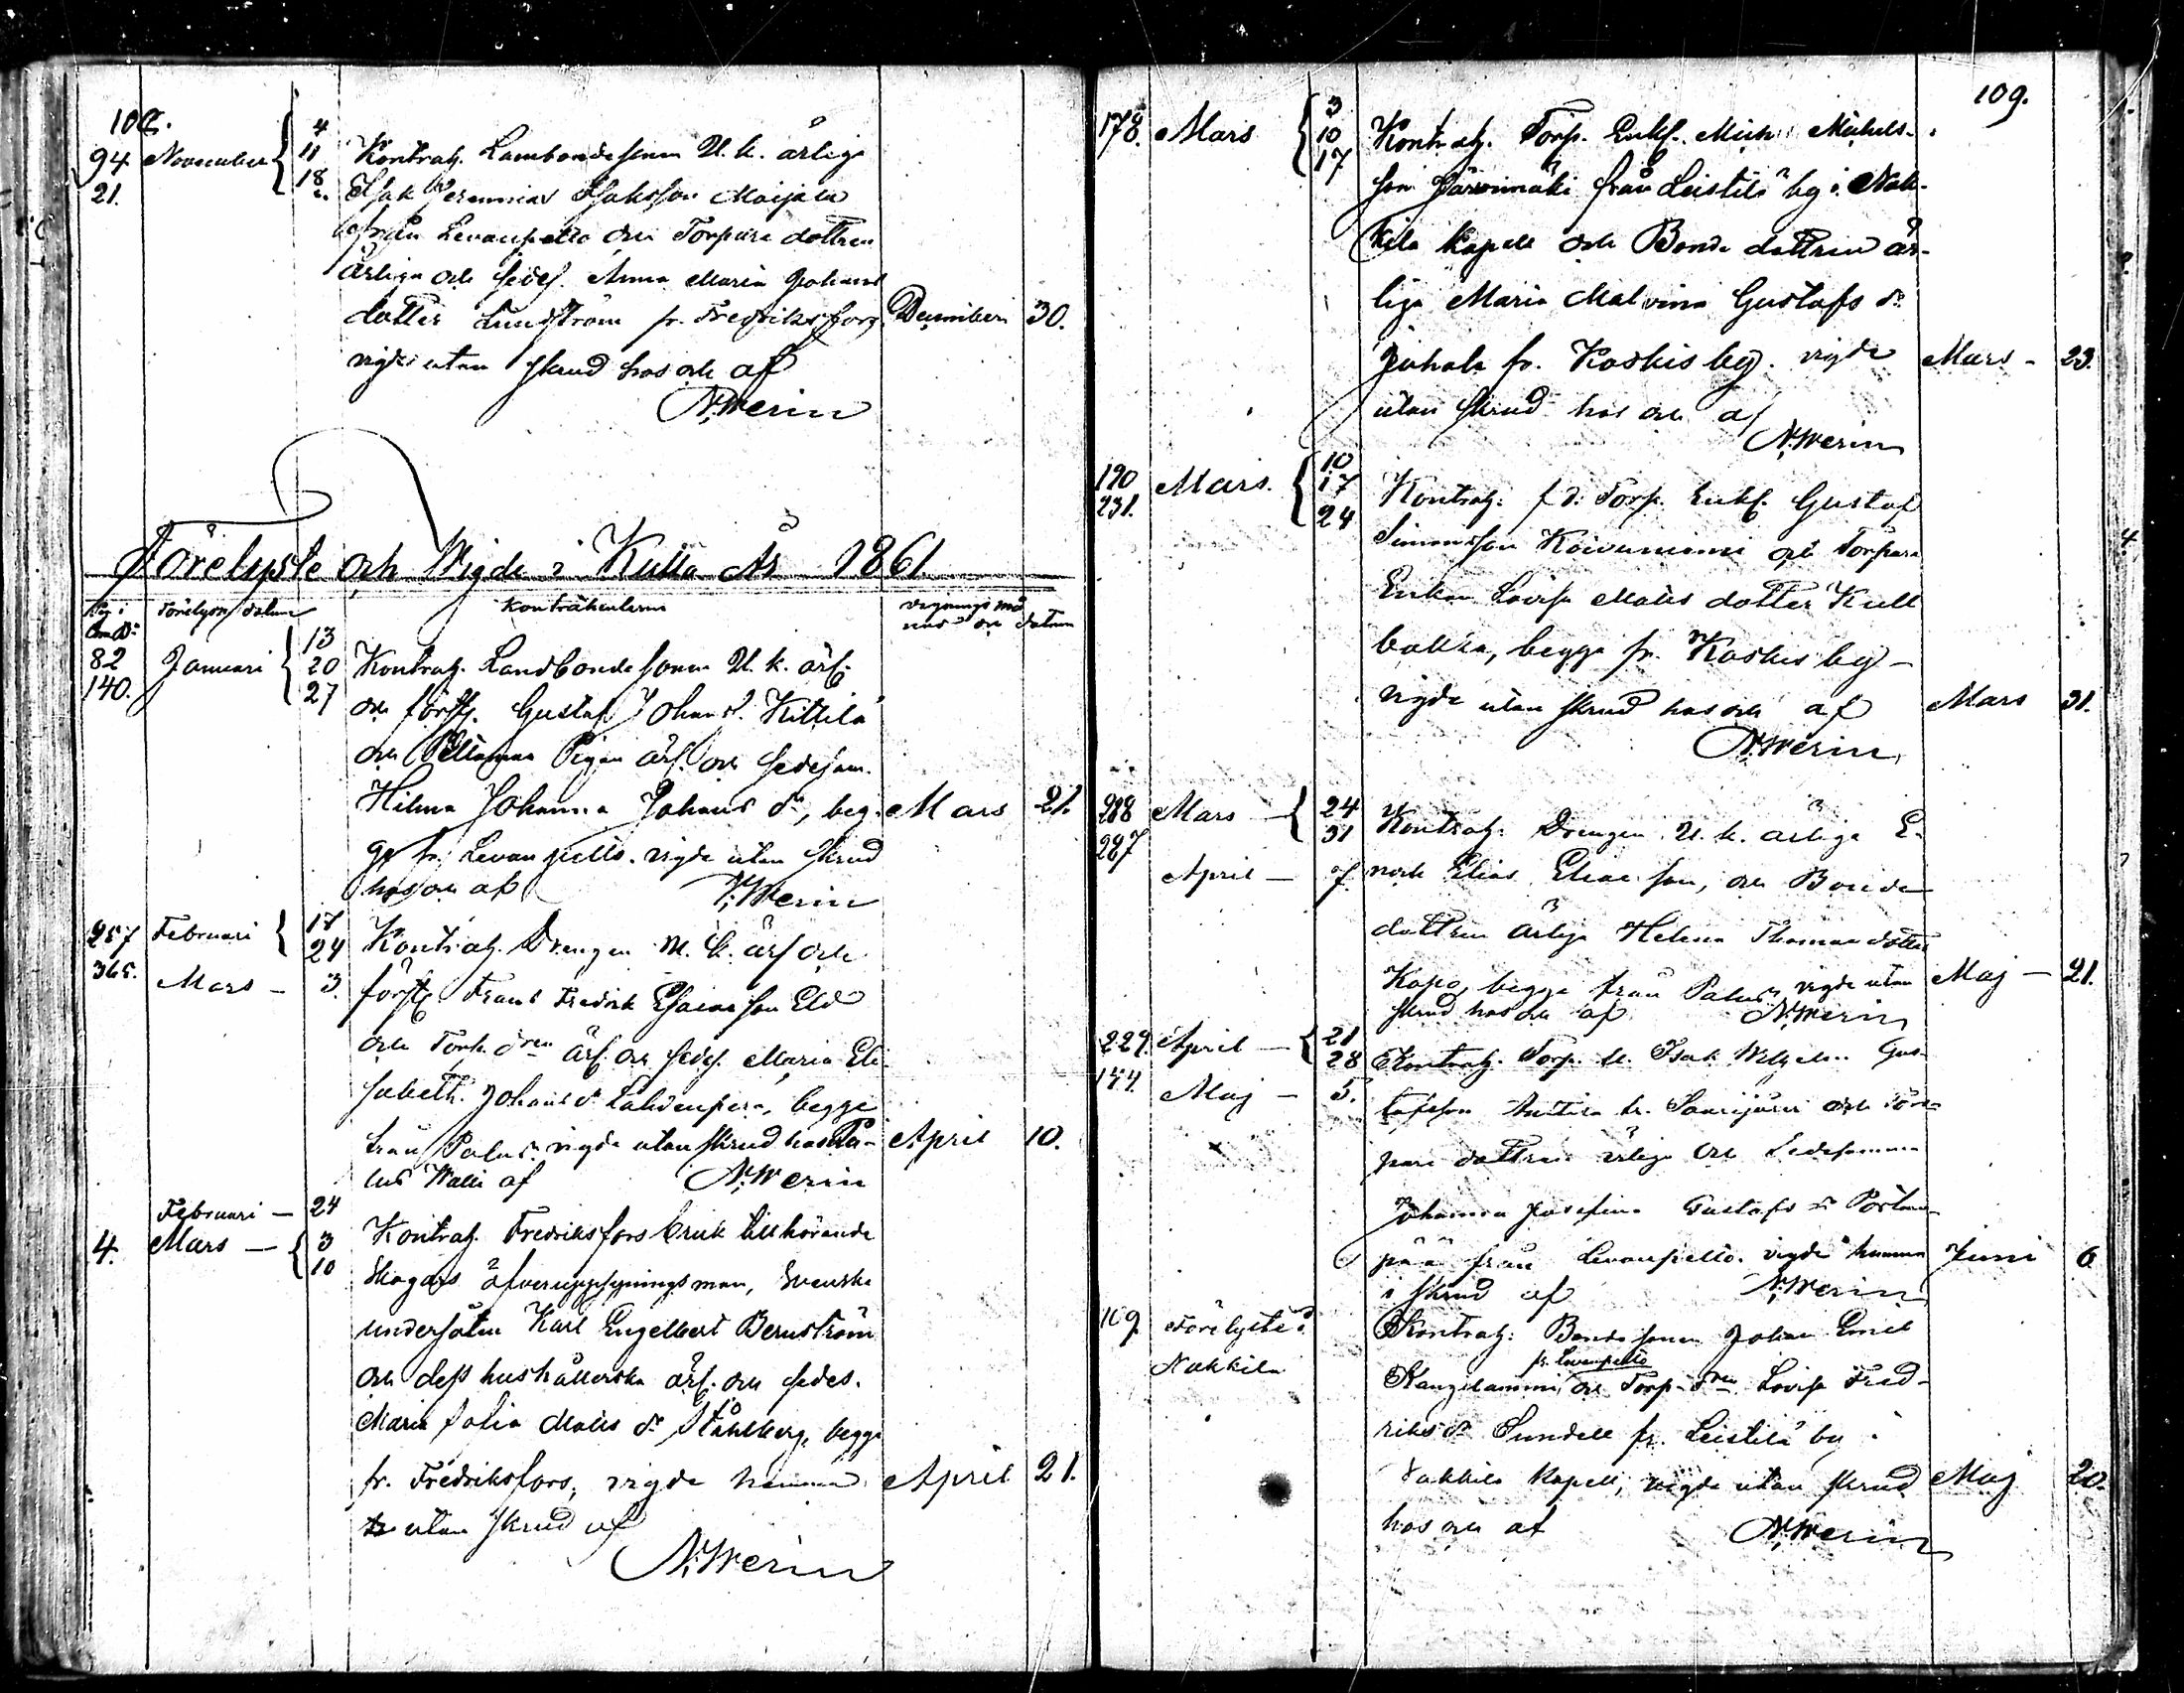 108.
94 November { 4 11 18 Kontrah. Lambondesonen U. k. ärlige
21. Isak Jeremias Isaksson Maijala
från Levanpelto och Torpare dottren
ärliga och sedes. Anna Maria Johans
dotter Lundström fr. Fredriksfors, December 30.
vigde utan skrud hos och af
N. Werin
Förelyste och Wigde i Kulla År 1861
Pag: i Förelysn. datum Kontrahenterne Vignings må
nad och datum
82 Januari { 13 20 27 Kontrah. Landbondesonen U. k. ärl.
140. och försth. Gustaf Johans s. Kittilä
och Pigan ärl. och sedesam.
Hilma Johanna Johans dr, beg- Mars 21.
ge fr. Levanpelto. vigde utan skrud
hos och af N. Werin
257 Februari { 17 24 Kontrah. Drengen U. k. ärl och
365. Mars - 3. försth Frans Fredrik Esaiasson Eld
och Torp. dren ärl. och sedes. Maria Eli-
sabeth Johans dr Lähdenperä, begge
från Palus. vigde utan skrud hos Pa- April 10.
lus Walli af N. Werin
Februari — 24
4. Mars — { 3 10 Kontrah. Fredriksfors bruk tillhörande
skogars öfveruppsyningsman, Svenske
undersåten Karl Engelbert Bernström
och dess hushållerska ärl. och sedes.
Maria Sofia Matts dr Ståhlberg, begge
fr. Fredriksfors, vigde hemma April 21.
utan skrud af
N. Werin
109.
178. Mars { 3 10 17 Kontrah. Torp. Enkl. Mich. Michels-
son Järvimäki från Leistilä by i Nak-
kila kapell och Bonde dottren är-
liga Maria Malvina Gustafs dr
Juhala fr. Koskis by. vigde Mars - 23.
utan skrud hos och af
N. Werin
190 Mars. { 10 17 24 Kontrah. f. d. Torp. Enkl. Gustaf
231. Simonsson Koivuniemi och Torpare
Enkan Lovisa Matts dotter Kull
balkka, begge fr. Koskis by —
vigde utan skrud hos och af Mars 31.
N. Werin
288 Mars — { 24 31 Kontrah. Drengen U. k. ärlige E-
287 April — 7. noch Elias Eliasson, och Bonde
dottren ärliga Helena Thomas dotter
Kopo, begge från Palus vigde utan Maj — 21.
skrud hos och af N. Werin
229. April — { 21 28 Kontrah. Torp. U. Isak Wilhelm Gus-
154. Maj — 5. tafsson Anttila fr. Saarijärvi och Tor-
pare dottren ärliga och Sedesamma
Johanna Josefina Gustafs dr Portaan-
pää från Levanpelto. vigde hemma Juni 6
i skrud af N. Werin
109 Förelyste i Kontrah: Bondesonen Johan Emil
fr. Levanpelto
Nakkila Kangelammi, och Torp. dren Lovisa Fred-
riks dr Sundell fr. Leistilä by i
Nakkila Kapell, vigde utan skrud Maj 20.
hos och af N. Werin